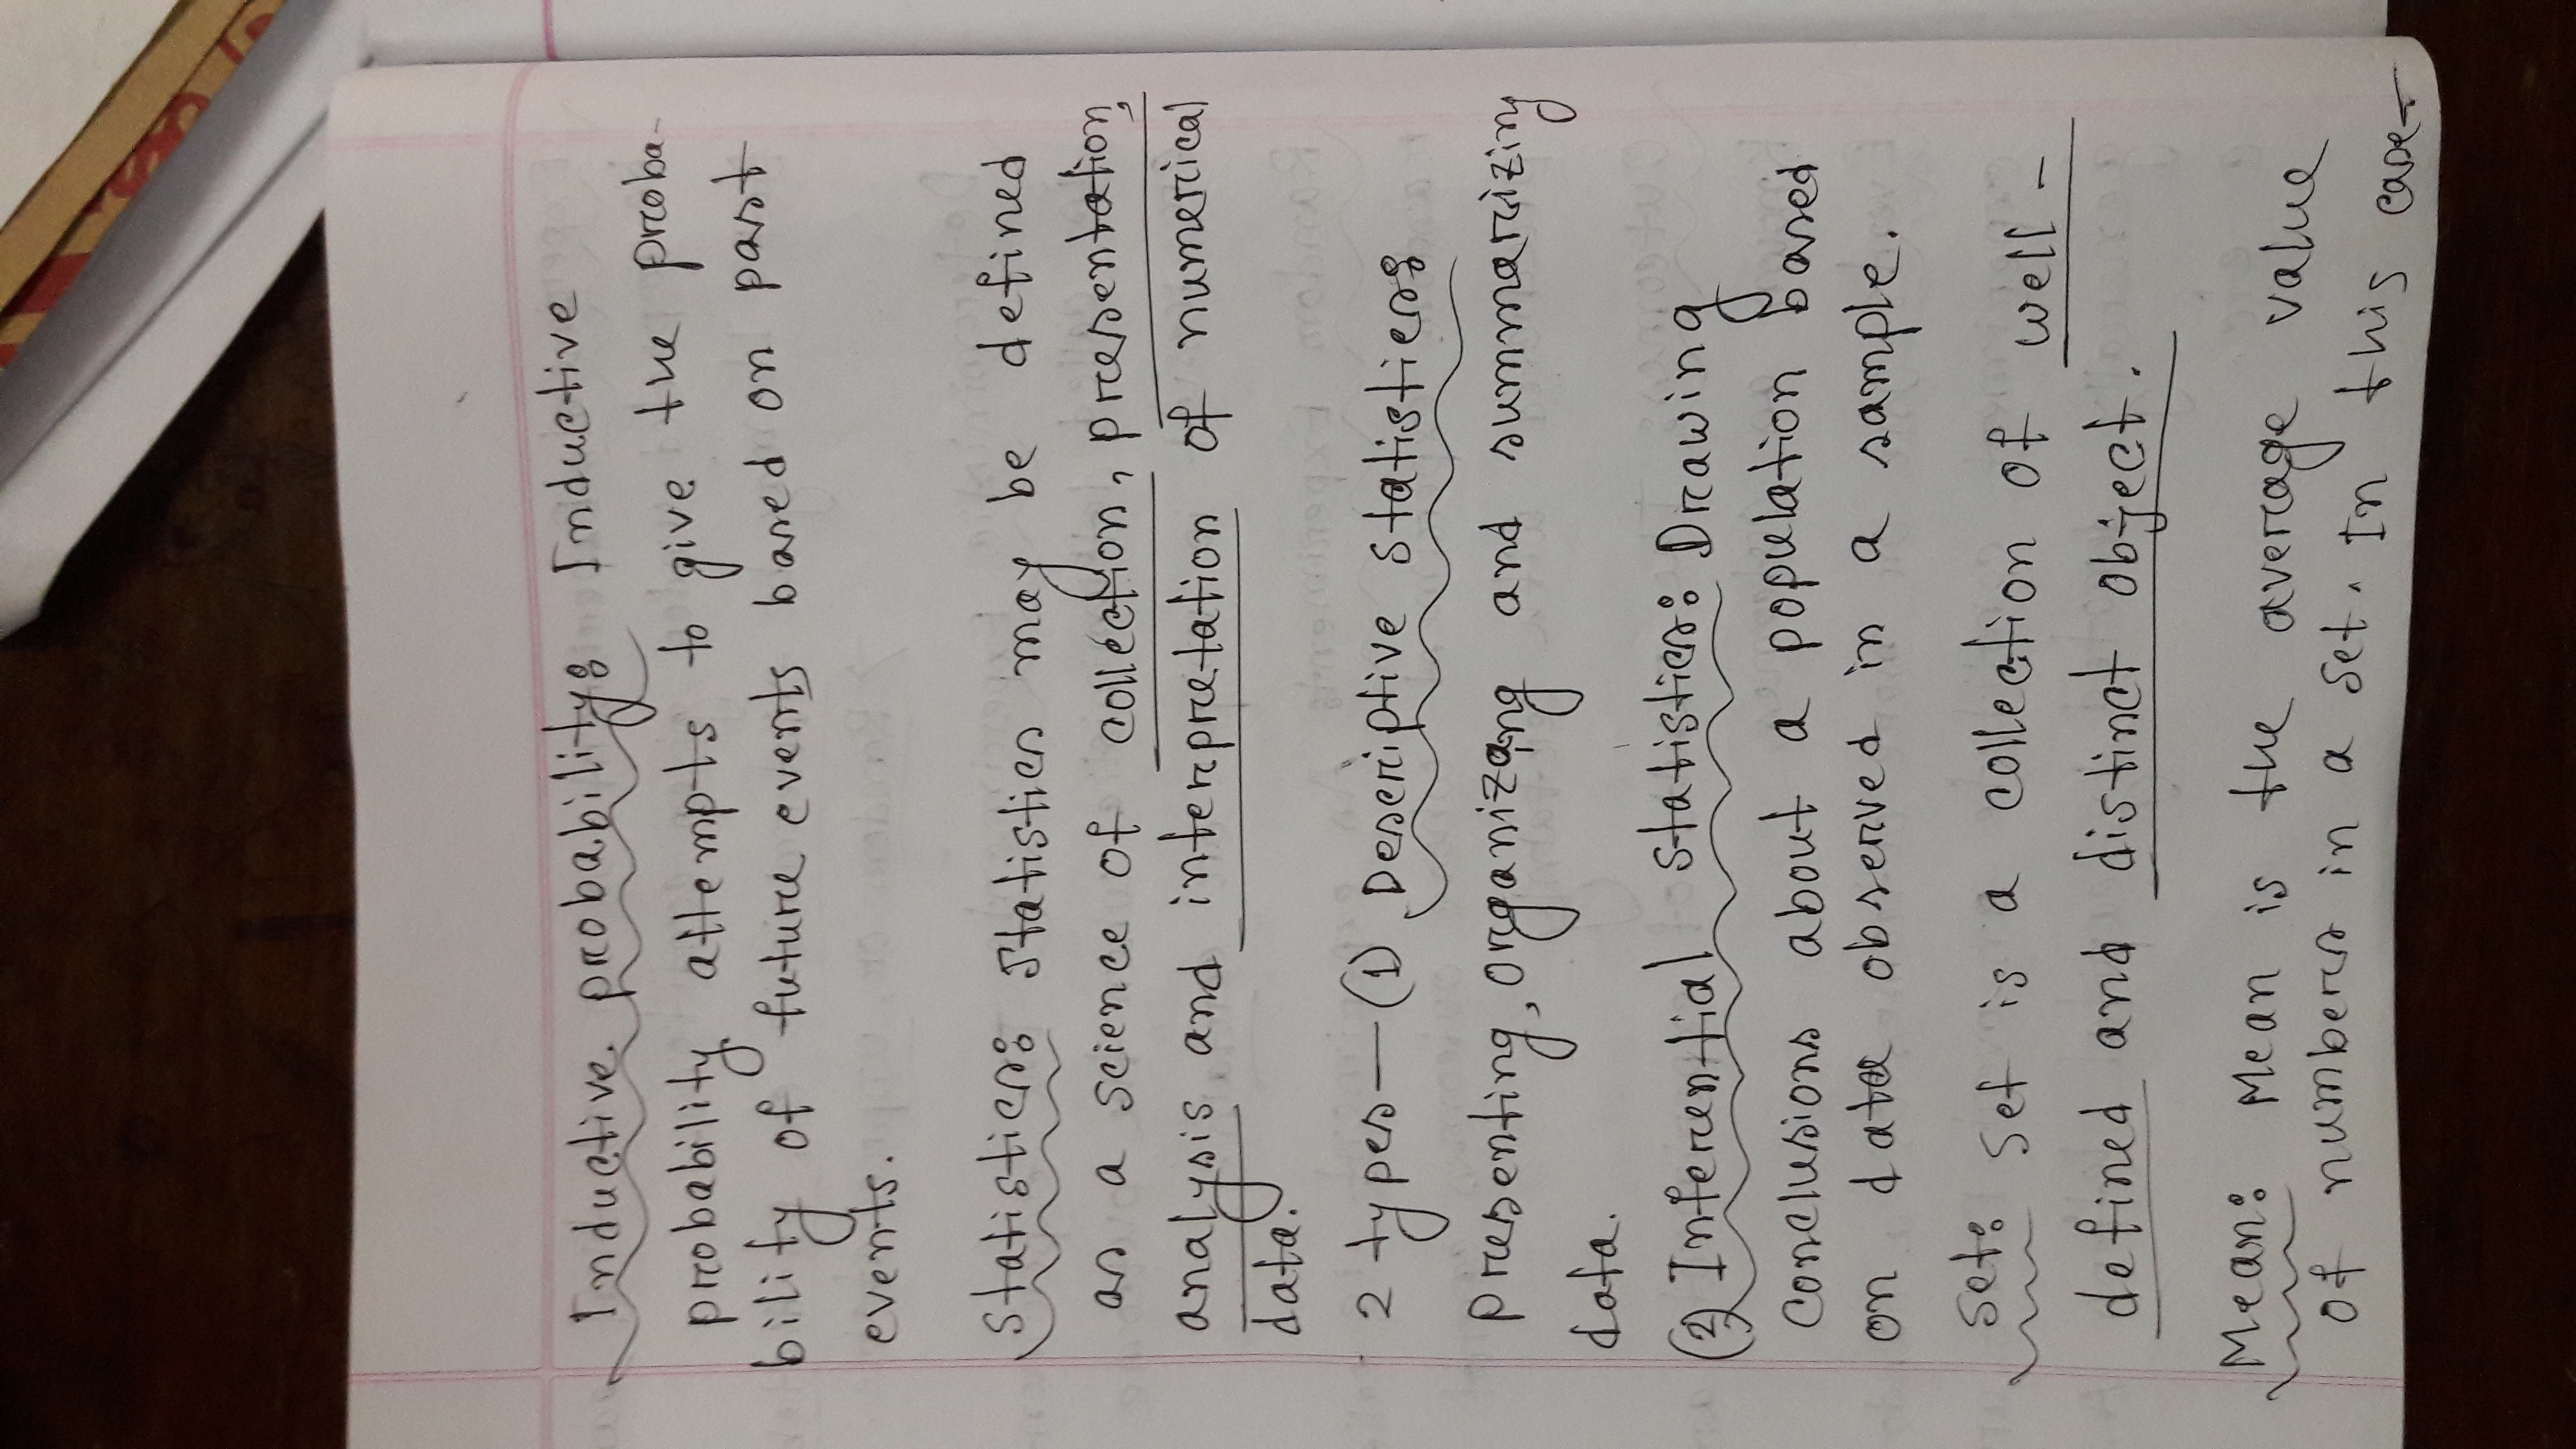 Inductive probability: Inductive
probability attempts to give the proba-
bility of future events based on past
events.
Statistics: Statistics may be defined
as a science of collection, presentation,
analysis and interpretation of numerical
data.
2 types— (1) Descriptive statistics:
Presenting, organizing and summarizing
data.
(2) Inferential statistics: Drawing
conclusions about a population based
on data observed in a sample.
Set: Set is a collection of well-
defined and distinct object.
Mean: Mean is the average value
of numbers in a set. In this case-